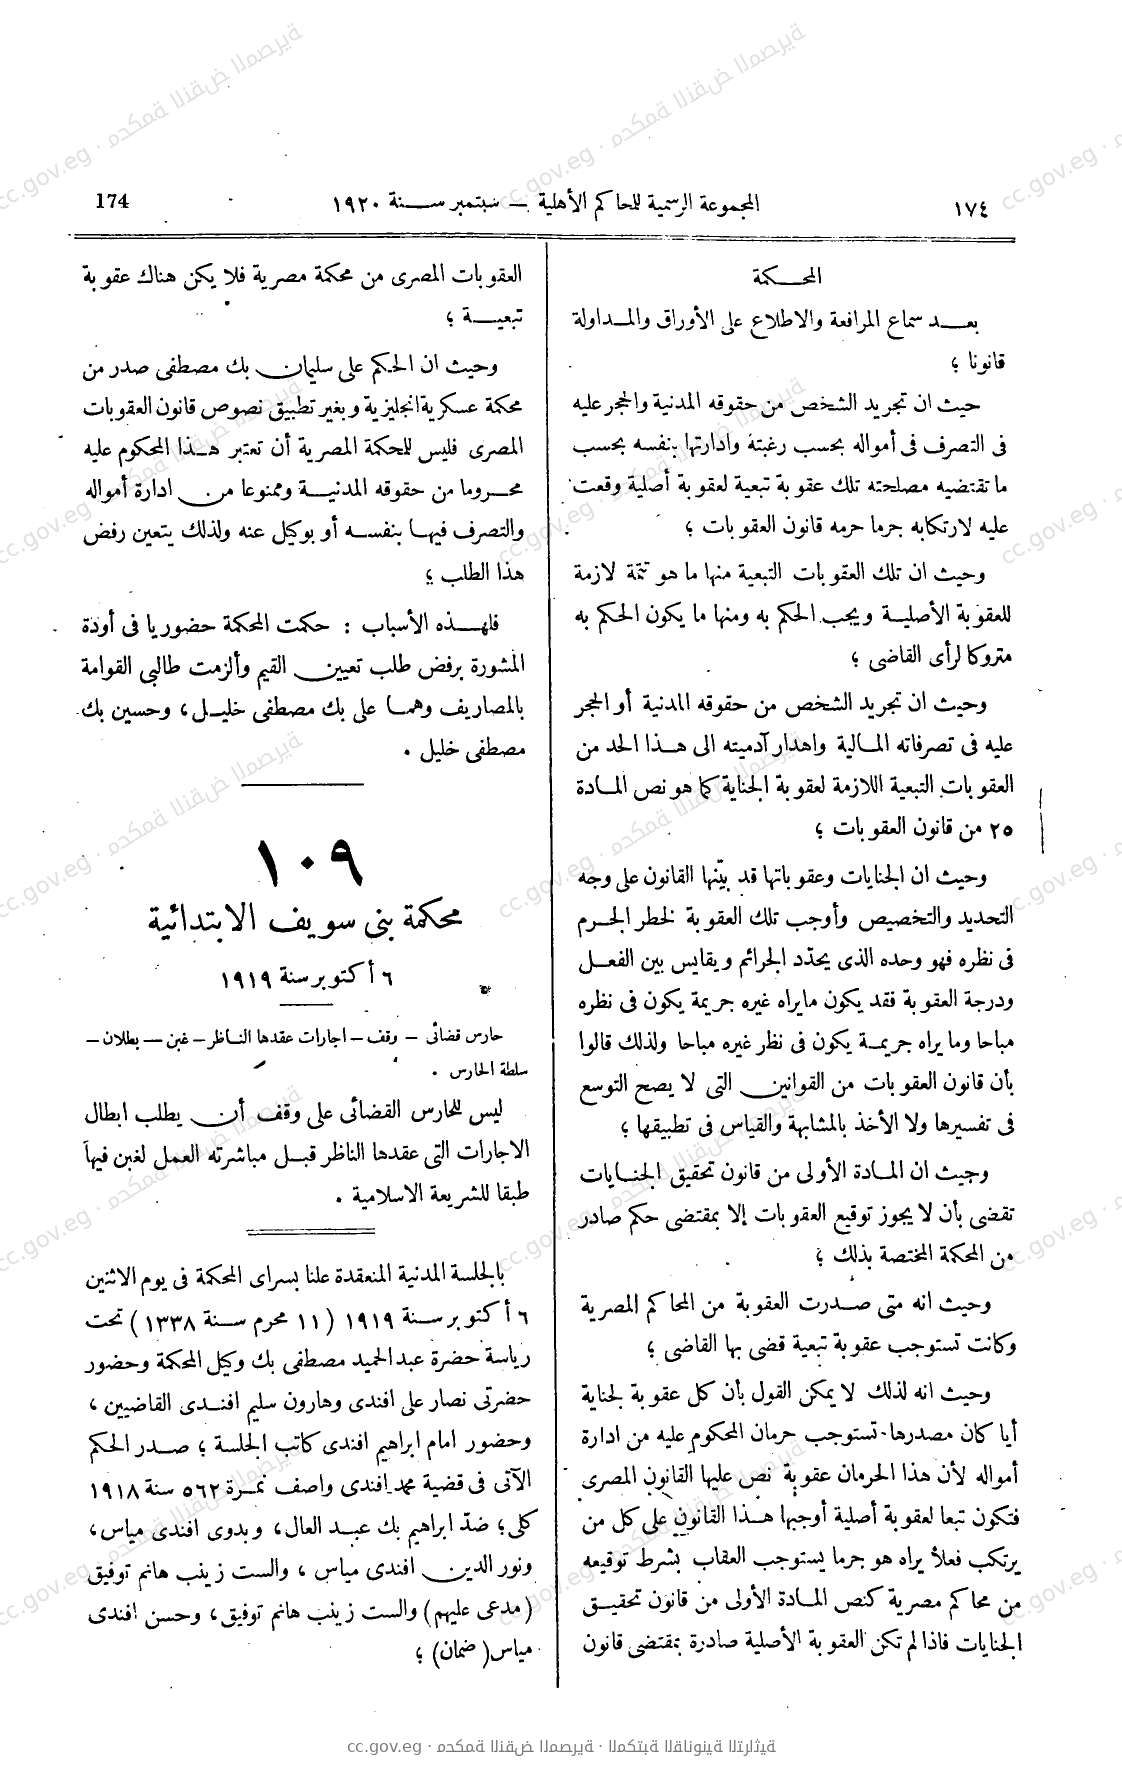 ١٧٤ المجموعة الرسمية للمحاكم الأهلية – سبتمبر سنة ١٩٢٠ 174
المحكمة
بعد سماع المرافعة والاطلاع على الأوراق والمداولة
قانونا ؛
حيث ان تجريد الشخص من حقوقه المدنية والحجر عليه
فى التصرف فى أمواله بحسب رغبته وادارتها بنفسه بحسب
ما تقتضيه مصلحته تلك عقوبة تبعية لعقوبة أصلية وقعت
عليه لارتكابه جرما حرمه قانون العقوبات ؛
وحيث ان تلك العقوبات التبعية منها ما هو تتمة لازمة
للعقوبة الأصلية ويجب الحكم به ومنها ما يكون الحكم به
متروكا لرأى القاضى ؛
وحيث ان تجريد الشخص من حقوقه المدنية أو الحجر
عليه فى تصرفاته المالية واهدار آدميته الى هذا الحد من
العقوبات التبعية اللازمة لعقوبة الجناية كما هو نص المادة
٢٥ من قانون العقوبات ؛
وحيث ان الجنايات وعقوباتها قد بيّنها القانون على وجه
التحديد والتخصيص وأوجب تلك العقوبة لخطر الجرم
فى نظره فهو وحده الذى يحدّد الجرائم ويقايس بين الفعل
ودرجة العقوبة فقد يكون مايراه غيره جريمة يكون فى نظره
مباحا وما يراه جريمة يكون فى نظر غيره مباحا ولذلك قالوا
بأن قانون العقوبات من القوانين التى لا يصح التوسع
فى تفسيرها ولا الأخذ بالمشابهة والقياس فى تطبيقها ؛
وحيث ان المادة الأولى من قانون تحقيق الجنايات
تقضى بأن لا يجوز توقيع العقوبات إلا بمقتضى حكم صادر
من المحكمة المختصة بذلك ؛
وحيث انه متى صدرت العقوبة من المحاكم المصرية
وكانت تستوجب عقوبة تبعية قضى بها القاضى ؛
وحيث انه لذلك لا يمكن القول بأن كل عقوبة لجناية
أيا كان مصدرها تستوجب حرمان المحكوم عليه من ادارة
أمواله لأن هذا الحرمان عقوبة نص عليها القانون المصرى
فتكون تبعا لعقوبة أصلية أوجبها هذا القانون على كل من
يرتكب فعلا يراه هو جرما يستوجب العقاب بشرط توقيعه
من محاكم مصرية كنص المادة الأولى من قانون تحقيق
الجنايات فاذا لم تكن العقوبة الأصلية صادرة بمقتضى قانون
العقوبات المصرى من محكمة مصرية فلا يكن هناك عقوبة
تبعية ؛
وحيث ان الحكم على سليمان بك مصطفى صدر من
محكمة عسكرية انجليزية وبغير تطبيق نصوص قانون العقوبات
المصرى فليس للحكمة المصرية أن تعتبر هذا المحكوم عليه
محروما من حقوقه المدنية وممنوعا من ادارة أمواله
والتصرف فيها بنفسه أو بوكيل عنه ولذلك يتعين رفض
هذا الطلب ؛
فلهذه الأسباب : حكمت المحكمة حضوريا فى أودة
المشورة برفض طلب تعيين القيم وألزمت طالبى القوامة
بالمصاريف وهما على بك مصطفى خليل، وحسين بك
مصطفى خليل .
١٠٩
محكمة بنى سويف الابتدائية
٦ أكتوبر سنة ١٩١٩
حارس قضائى – وقف – اجارات عقدها الناظر – غبن – بطلان –
سلطة الحارس .
ليس للحارس القضائى على وقف أن يطلب ابطال
الاجارات التى عقدها الناظر قبل مباشرته العمل لغبن فيها
طبقا للشريعة الاسلامية .
بالجلسة المدنية المنعقدة علنا بسراى المحكمة فى يوم الاثنين
٦ أكتوبر سنة ١٩١٩ (١١ محرم سنة ١٣٣٨) تحت
رياسة حضرة عبد الحميد مصطفى بك وكيل المحكمة وحضور
حضرتى نصار على افندى وهارون سليم افندى القاضيين ،
وحضور امام ابراهيم افندى كاتب الجلسة ؛ صدر الحكم
الآتى فى قضية محمد افندى واصف نمرة ٥٦٢ سنة ١٩١٨
كلى؛ ضدّ ابراهيم بك عبد العال، وبدوى افندى مياس،
ونور الدين افندى مياس ، والست زينب هانم توفيق
(مدعى عليهم) والست زينب هانم توفيق، وحسن افندى
مياس (ضمان) ؛
cc.gov.eg · محكمة النقض المصرية · المكتبة القانونية التراثية